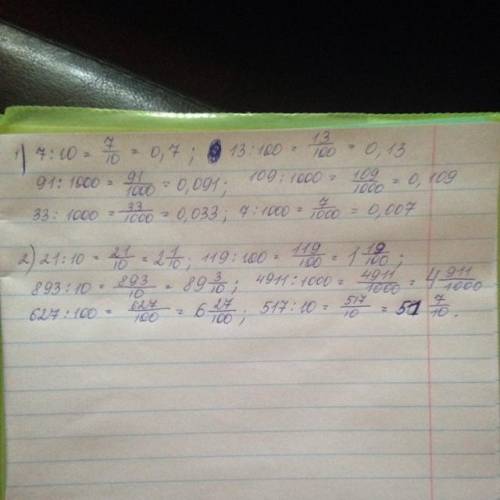 1) 7:10 = 7/10 = 0,7; 13:100 = 13/100 = 0,13
91:1000 = 91/1000 = 0,091; 109:1000 = 109/1000 = 0,109
33:1000 = 33/1000 = 0,033; 7:1000 = 7/1000 = 0,007
2) 21:10 = 21/10 = 2 1/10; 119:100 = 119/100 = 1 19/100;
893:10 = 893/10 = 89 3/10; 4911:1000 = 4911/1000 = 4 911/1000
627:100 = 627/100 = 6 27/100; 517:10 = 517/10 = 51 7/10.